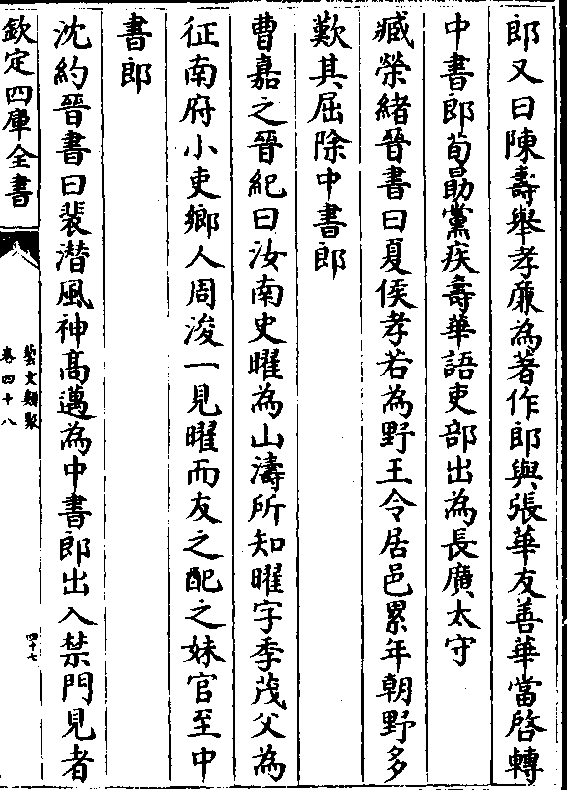 郎又曰陳壽舉孝廉為著作郎與張華友善華當啓轉
中書郎荀勗黨疾壽華語吏部出為長廣太守
臧榮緒晉書曰夏侯孝若為野王令居邑累年朝野多
歎其屈除中書郎
曹嘉之晉紀曰汝南史曜為山濤所知曜字季茂父為
征南府小吏鄉人周浚一見曜而友之配之妹官至中
書郎
沈約晉書曰裴潛風神高邁為中書郎出入禁門見者
欽定四庫全書
藝文類聚
卷四十八
四十七